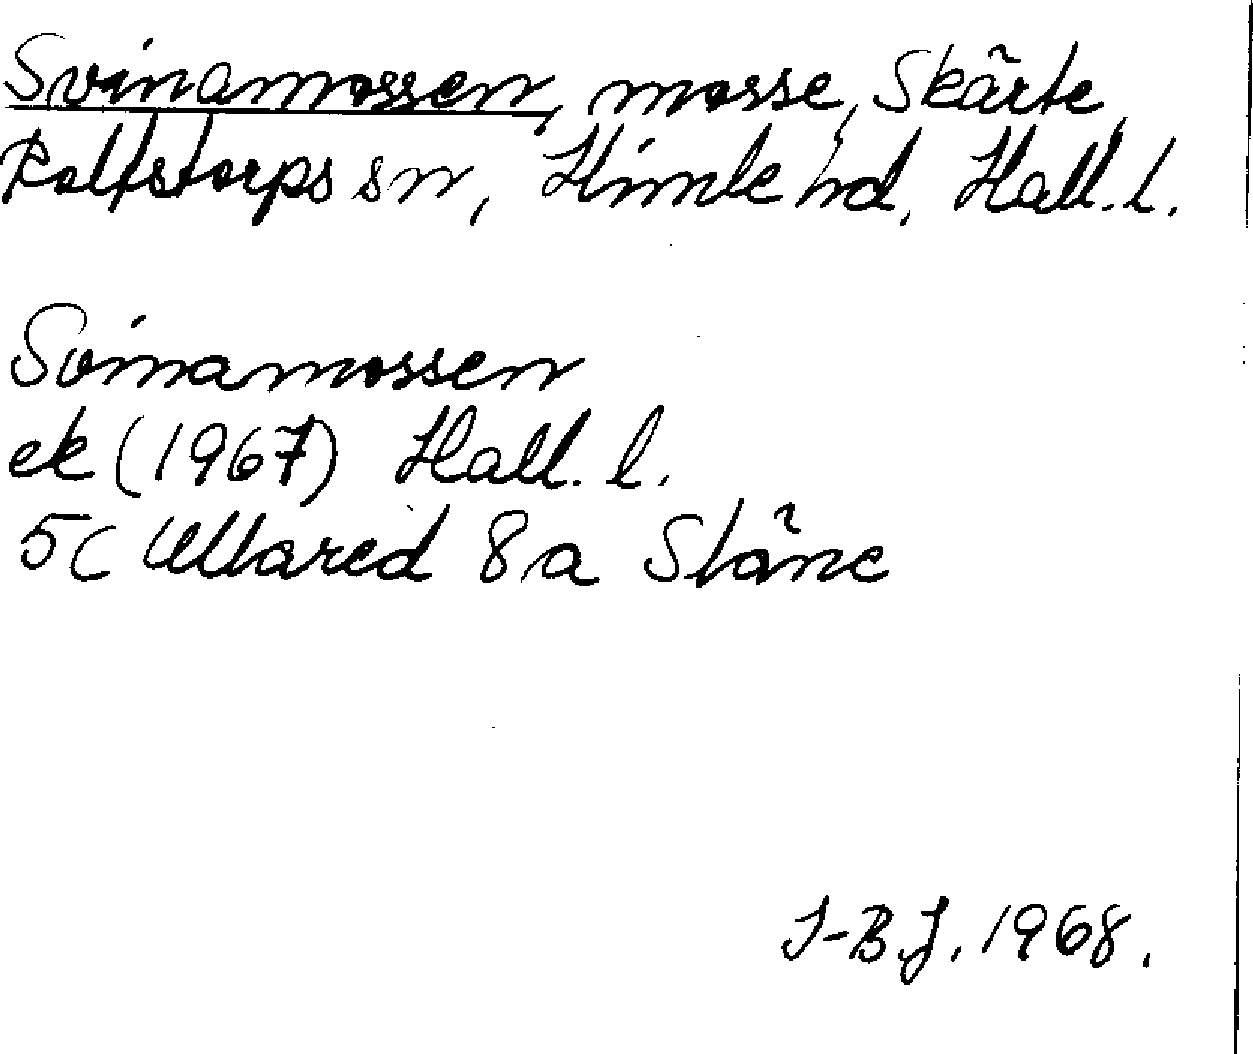 Svinamossen, mosse, Skärte,
Rolfstorps sn, Himle hd, Hall. l.
Svinamossen
ek (1967) Hall. l.
5C Ullared 8a Släne
I-B.J. 1968.